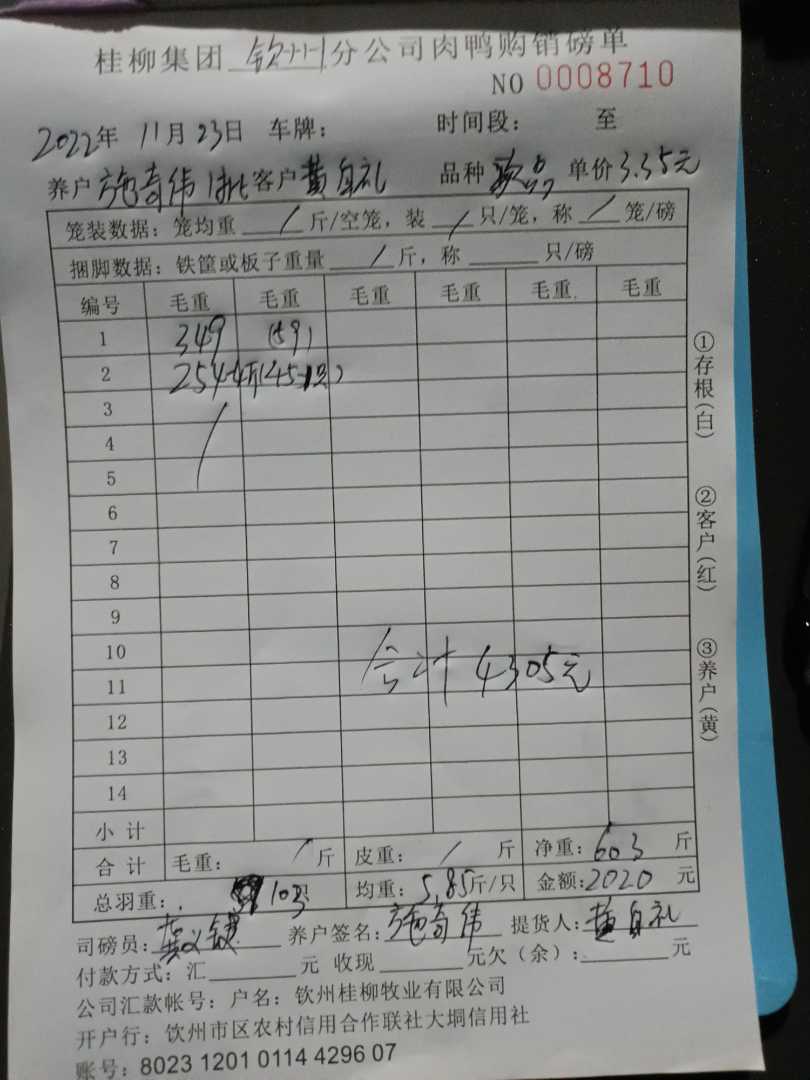 桂柳集团 钦州 分公司肉鸭购销磅单
NO 0008710
2022年 11月 23日 车牌： 时间段： 至
养户 施奇伟 1批 客户 黄自礼 品种 次品 单价 3.35元
笼装数据：笼均重 / 斤/空笼，装 / 只/笼，称 / 笼/磅
捆脚数据：铁筐或板子重量 / 斤，称 只/磅
编号 毛重 毛重 毛重 毛重 毛重 毛重
1 349 (59)
2 254-4斤(45-1只)
3 /
4
5
6
7
8
9
10
11 合计 4305元
12
13
14
小 计
合 计 毛重： / 斤 皮重： / 斤 净重：603 斤
总羽重： 103 均重：5.85斤/只 金额：2020 元
司磅员： 养户签名：施奇伟 提货人：黄自礼
付款方式：汇 元 收现 元欠（余）： 元
公司汇款帐号：户名：钦州桂柳牧业有限公司
开户行：钦州市区农村信用合作联社大垌信用社
账号：8023 1201 0114 4296 07
①存根（白）
②客户（红）
③养户（黄）